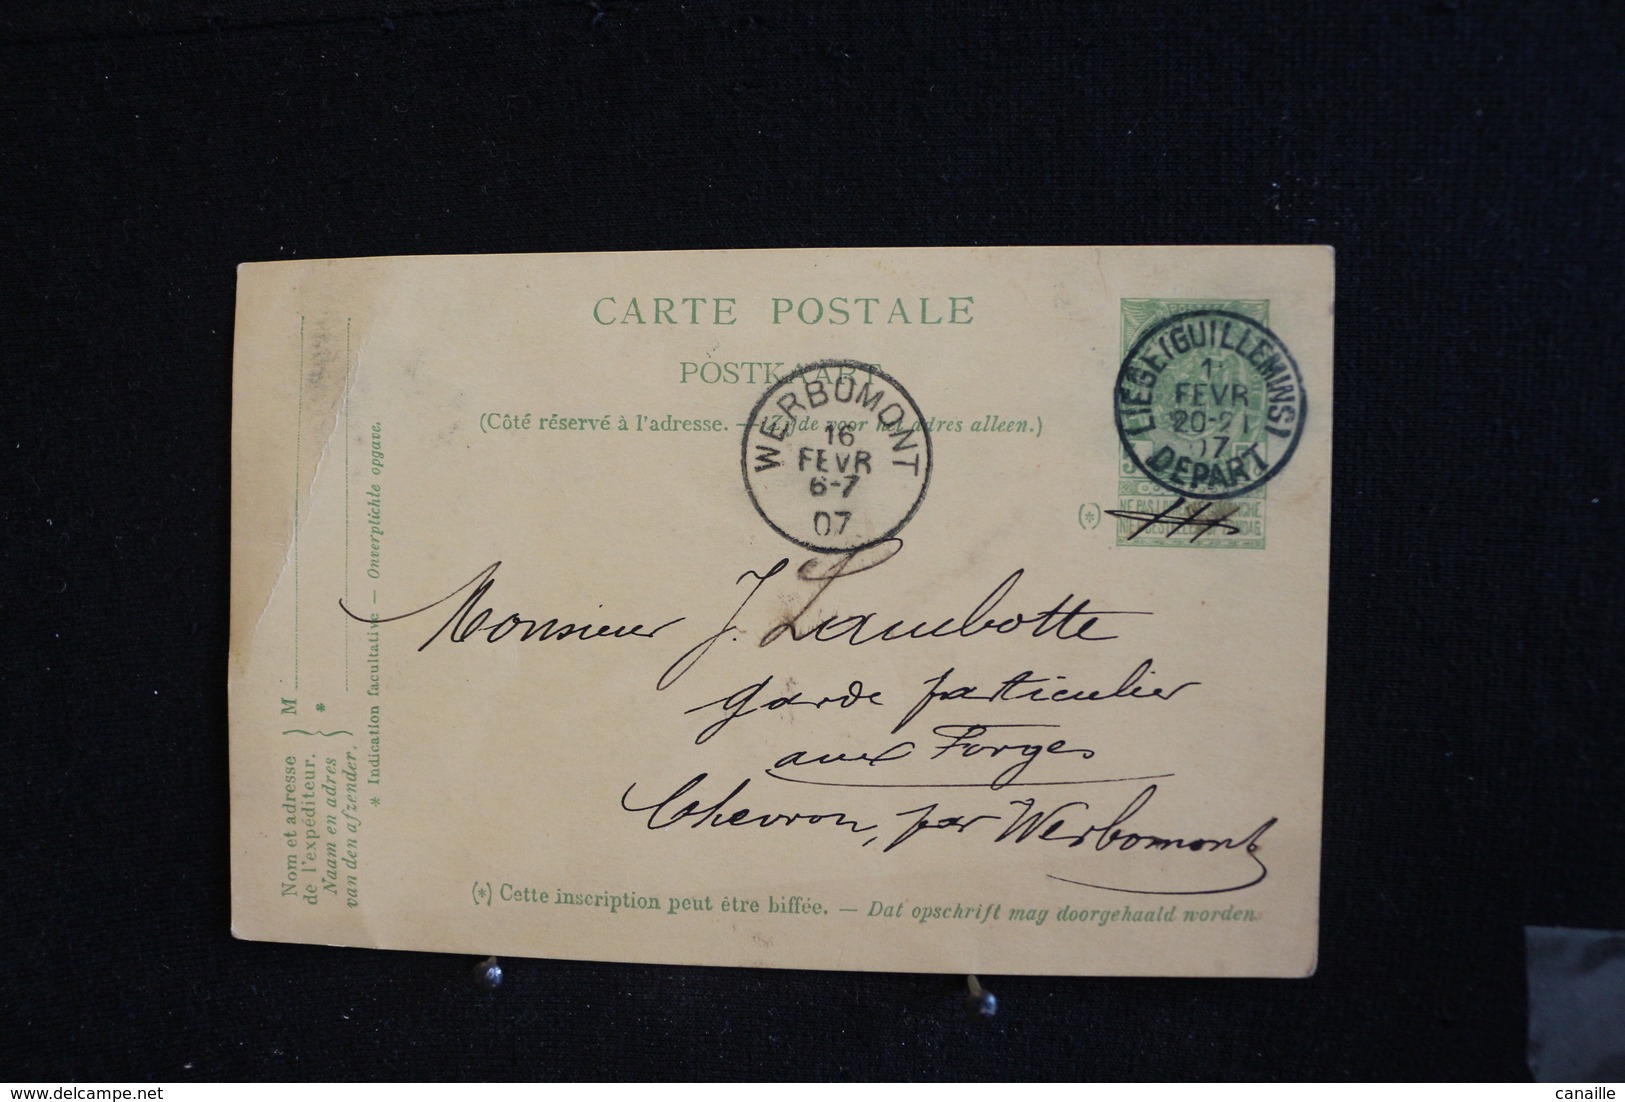 CARTE POSTALE
POSTKAART
(Côté réservé à l'adresse. — Zijde voor het adres alleen.)
WERBOMONT
16
FEVR
6-7
07
LIÈGE (GUILLEMINS)
FEVR
20-21
07
DEPART
(*)
Monsieur J. Lambotte
garde particulier
aux Forges
Chevron, par Werbomont
(*) Cette inscription peut être biffée. — Dat opschrift mag doorgehaald worden.
Nom et adresse
de l'expéditeur.
Naam en adres
van den afzender.
M
*
* Indication facultative — Onverplichte opgave.
canaille